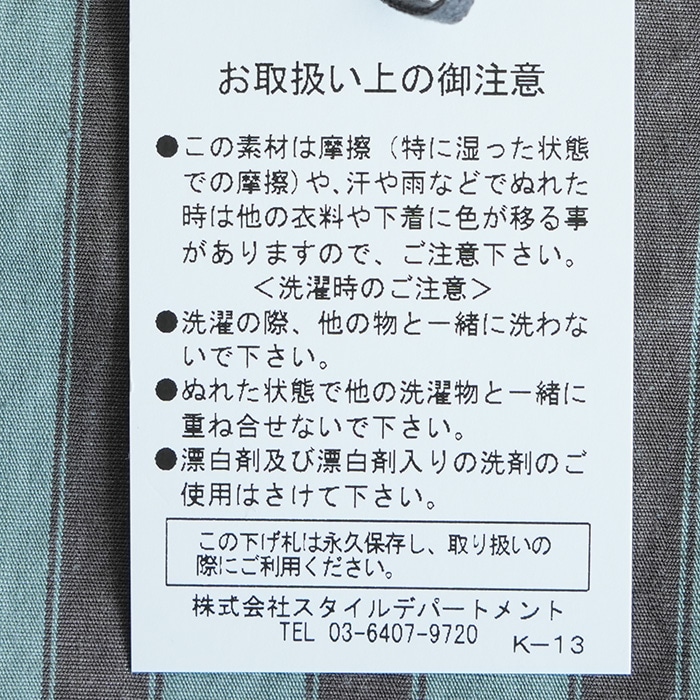 お取扱い上の御注意
●この素材は摩擦（特に湿った状態
での摩擦）や、汗や雨などでぬれた
時は他の衣料や下着に色が移る事
がありますので、ご注意下さい。
＜洗濯時のご注意＞
●洗濯の際、他の物と一緒に洗わな
いで下さい。
●ぬれた状態で他の洗濯物と一緒に
重ね合せないで下さい。
●漂白剤及び漂白剤入りの洗剤のご
使用はさけて下さい。
この下げ札は永久保存し、取り扱いの
際にご利用ください。
株式会社スタイルデパートメント
TEL 03-6407-9720
K-13